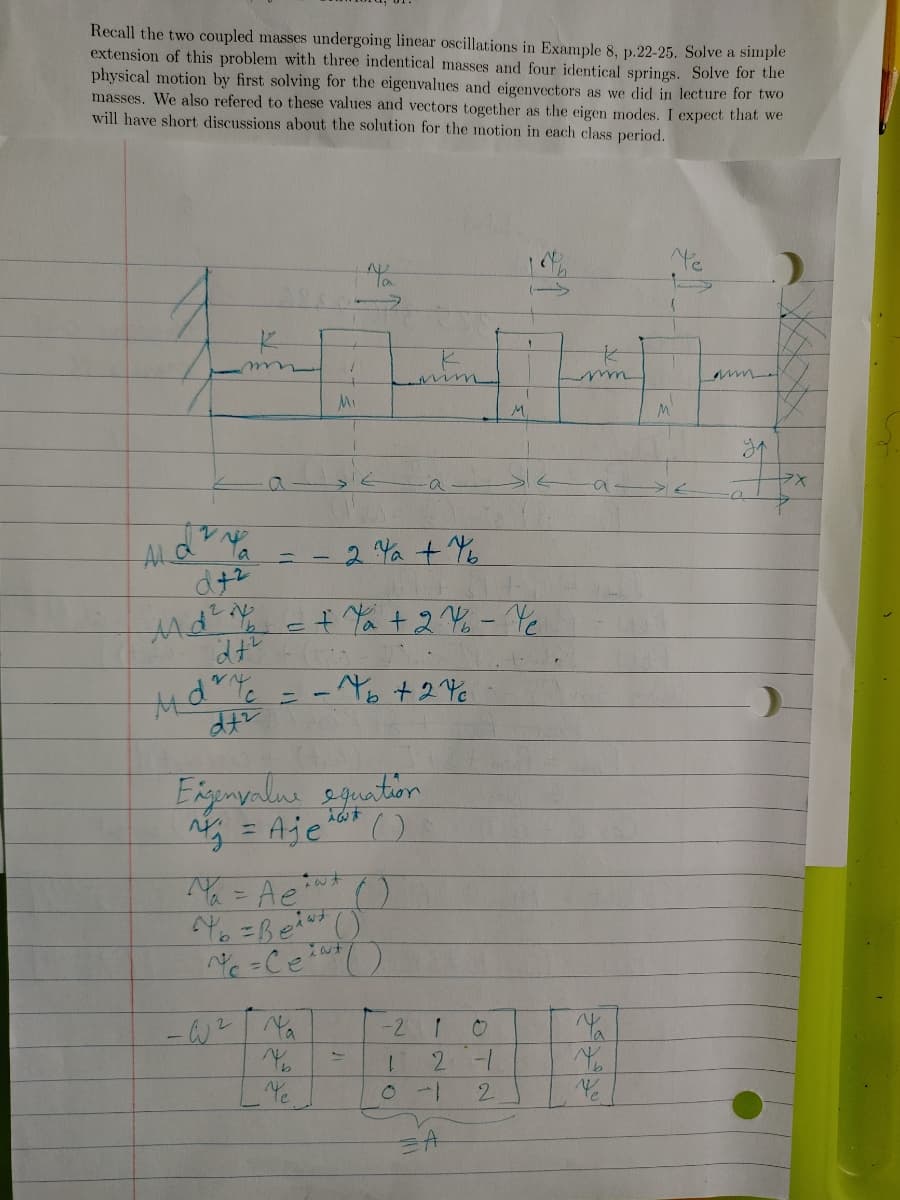 Recall the two coupled masses undergoing linear oscillations in Example 8, p.22-25. Solve a simple
extension of this problem with three indentical masses and four identical springs. Solve for the
physical motion by first solving for the eigenvalues and eigenvectors as we did in lecture for two
masses. We also refered to these values and vectors together as the eigen modes. I expect that we
will have short discussions about the solution for the motion in each class period.
ψa ψb ψc
k k k
M1 M M
a a a a
y x
M d²ψa/dt² = - 2 ψa + ψb
M d²ψb/dt² = + ψa + 2 ψb - ψc
M d²ψc/dt² = - ψb + 2 ψc
Eigenvalue equation
ψj = Aj e^iωt ( )
ψa = A e^iωt ( )
ψb = B e^iωt ( )
ψc = C e^iωt ( )
-ω² [ ψa -2 1 0 ψa
ψb = 1 2 -1 ψb
ψc ] 0 -1 2 ψc
≡ A